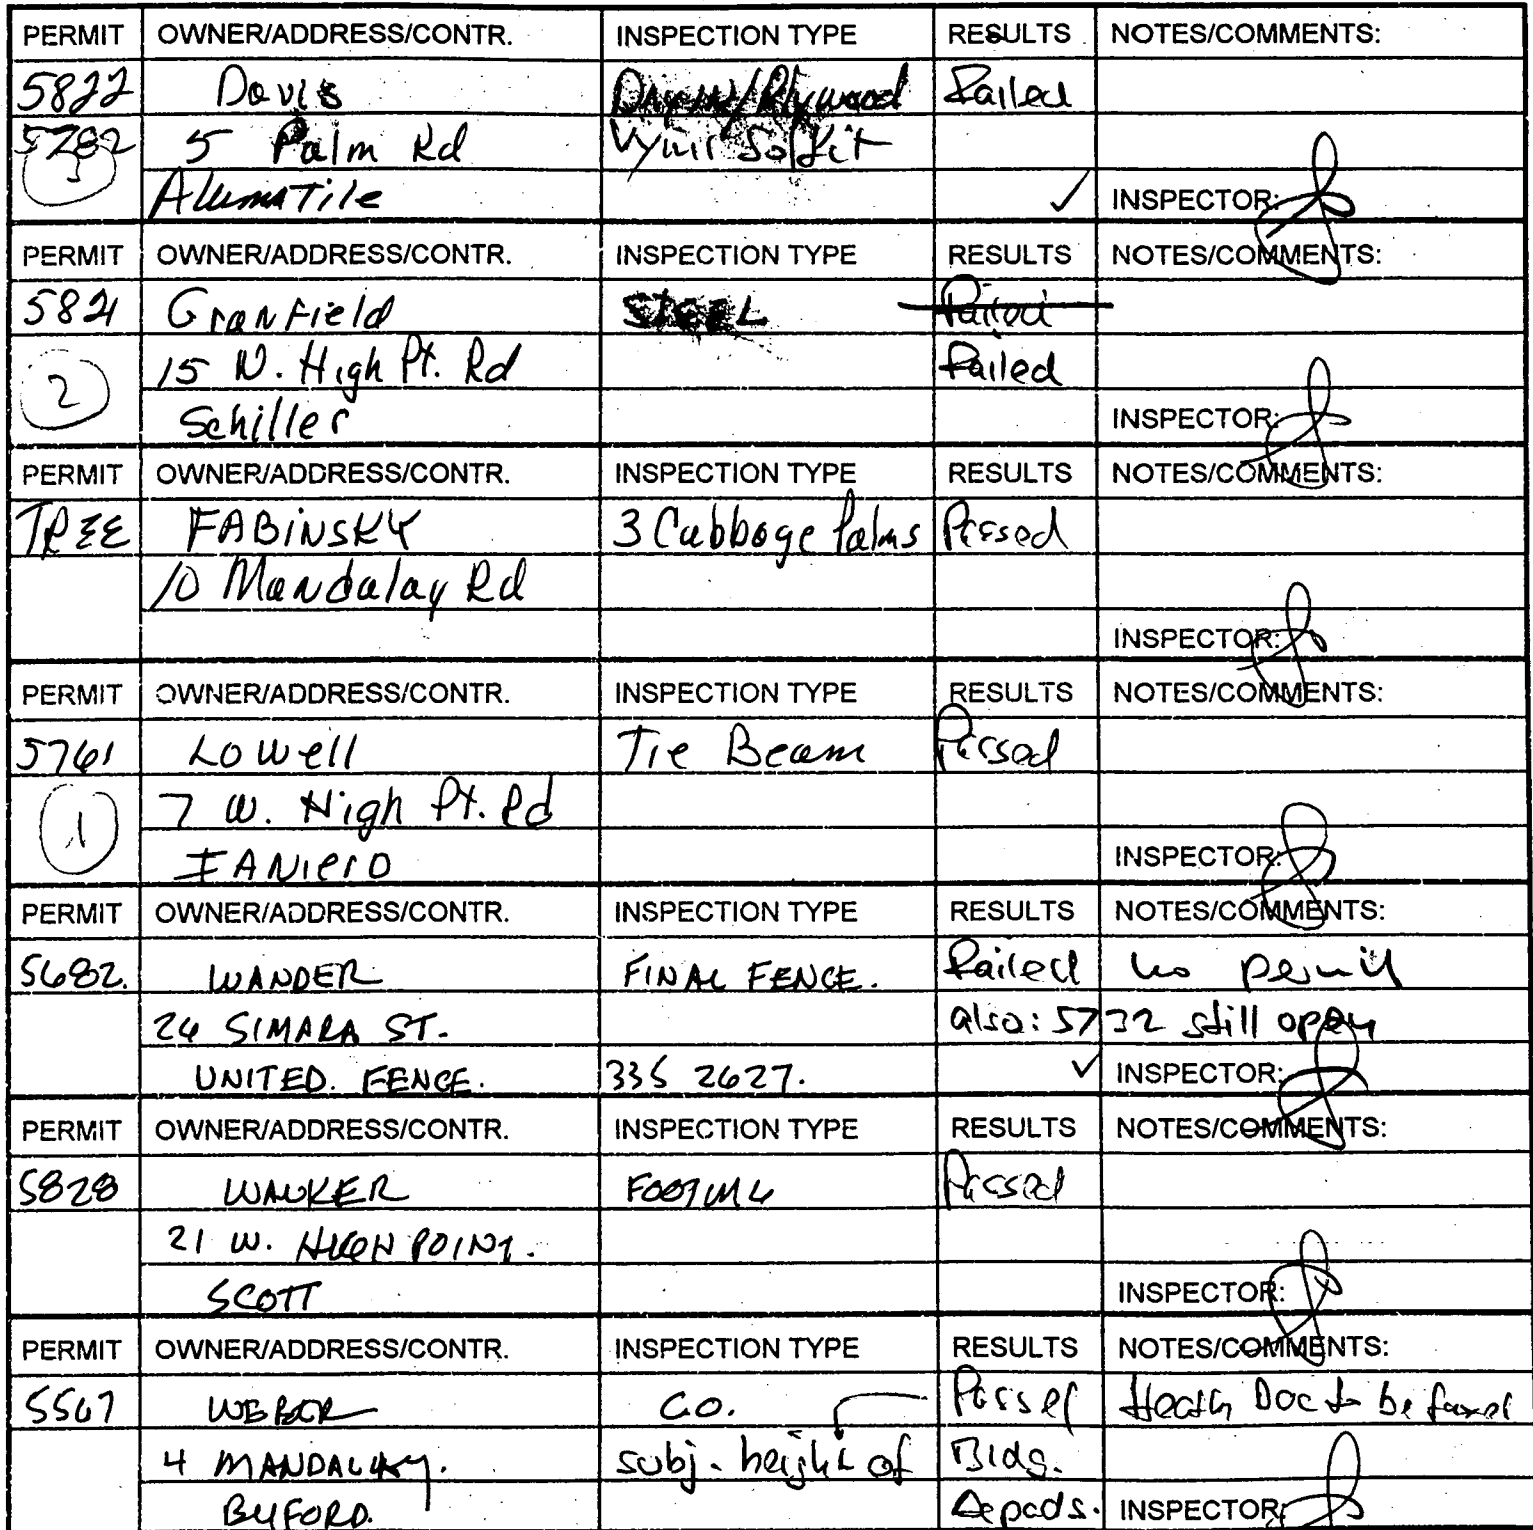 PERMIT OWNER/ADDRESS/CONTR. INSPECTION TYPE RESULTS NOTES/COMMENTS:
5822 Davis /Plywood Failed
5782 5 Palm Rd Soffit
3 AlumaTile ✓ INSPECTOR:
PERMIT OWNER/ADDRESS/CONTR. INSPECTION TYPE RESULTS NOTES/COMMENTS:
5821 Granfield STEEL
15 N. High Pt. Rd Failed
2 Schiller INSPECTOR:
PERMIT OWNER/ADDRESS/CONTR. INSPECTION TYPE RESULTS NOTES/COMMENTS:
TREE FABINSKY 3 Cabbage Palms Passed
10 Mandalay Rd
INSPECTOR:
PERMIT OWNER/ADDRESS/CONTR. INSPECTION TYPE RESULTS NOTES/COMMENTS:
5761 Lowell Tie Beam Passed
1 7 W. High Pt. Rd
INSPECTOR:
PERMIT OWNER/ADDRESS/CONTR. INSPECTION TYPE RESULTS NOTES/COMMENTS:
5682. WANDER FINAL FENCE. Failed no permit
24 SIMARA ST. also: 5732 still open
UNITED. FENCE. 335 2627. ✓ INSPECTOR:
PERMIT OWNER/ADDRESS/CONTR. INSPECTION TYPE RESULTS NOTES/COMMENTS:
5828 WALKER FOOTING Passed
21 W. HIGH POINT.
SCOTT INSPECTOR:
PERMIT OWNER/ADDRESS/CONTR. INSPECTION TYPE RESULTS NOTES/COMMENTS:
5567 WEBER C.O. Passed Heath Doc to be faxed
4 MANDALAY. subj. height of Bldg.
BUFORD. INSPECTOR: